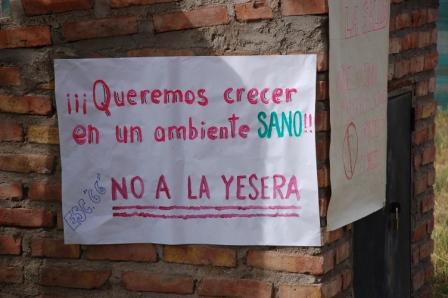 ¡¡¡Queremos crecer
en un ambiente SANO!!
NO A LA YESERA
ESC. 66
LA